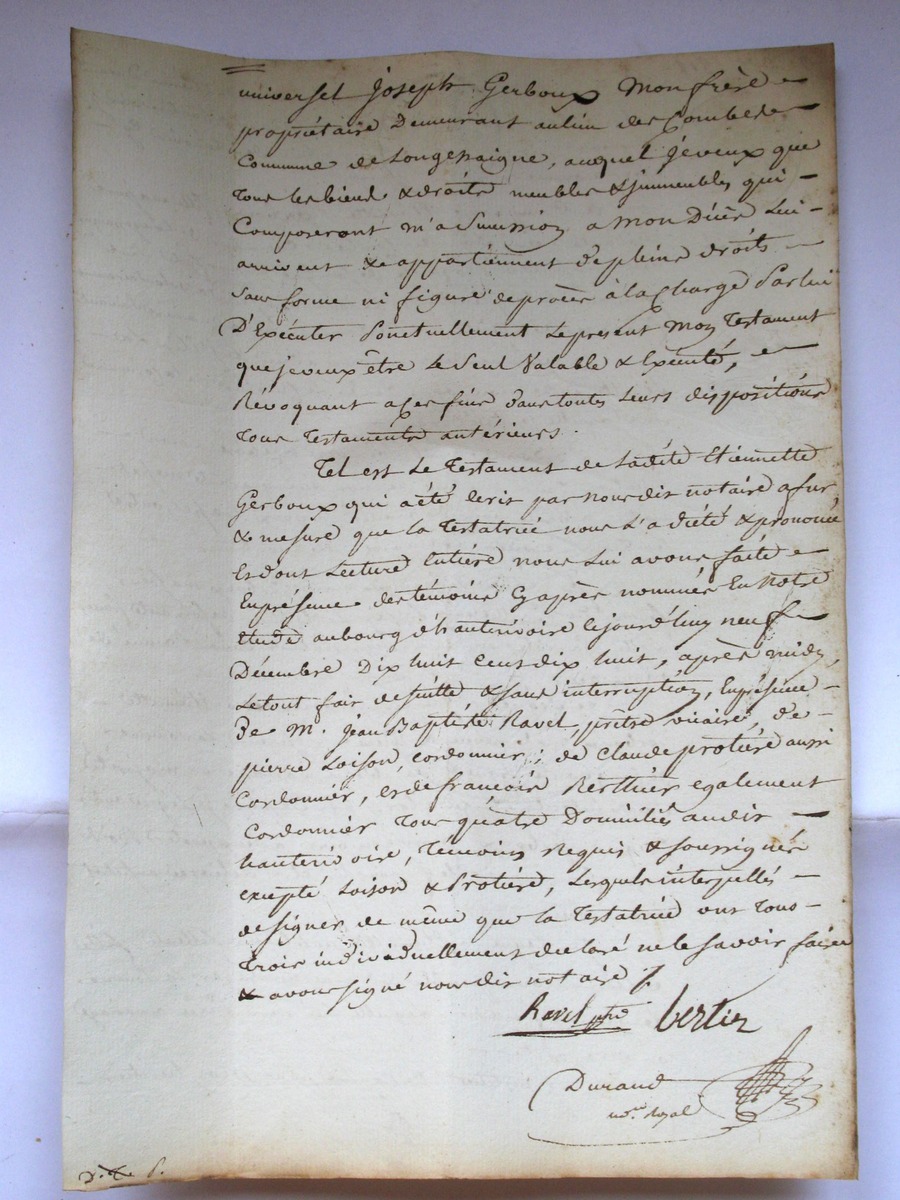 universel Joseph Gerboux Mon frère
propriétaire Demeurant au lieu des Combes
Commune de Longessaigne, auquel Je veux que
Tous les biens & droits meubles & immeubles qui
Composeront m'a Succession a Mon Décès Lui
arrivent & appartiennent de pleins droits
Sans forme ni figure de procès à la charge Par lui
D'Exécuter Ponctuellement Le présent Mon Testament
que je veux être Le Seul Valable & Exécuté,
Révoquant a Ces fins dans toutes Leurs dispositions
Tous Testaments antérieurs.
Tel est Le Testament de Ladite Etiennette
Gerboux qui a été Ecrit par Nous dit notaire a fur,
& mesure que la Testatrice nous L'a dicté & prononcé
Et dont Lecture Entière nous Lui avons faite
En présence des témoins Cy après nommés En Notre
Etude au bourg d'hauterivoire le jourd'huy neuf
Décembre Dix huit Cent dix huit, après midy,
Le tout fait de suitte & sans interruption, En présence
De M. Jean Baptiste Ravel, prêtre vicaire, de
pierre Loison, cordonnier; de Claude protière aussi
Cordonnier, et de francois Berthier également
Cordonnier Tous quatre Domiciliés audit
hauterivoire, Témoins Requis & soussignés
excepté Loison & Protière, Lesquels interpellés
de signer de même que la Testatrice ont Tous
Trois individuellement déclaré ne le savoir faire
& avons signé nous dit notaire /.
Ravel ptre bertier
Durand
no.re Royal